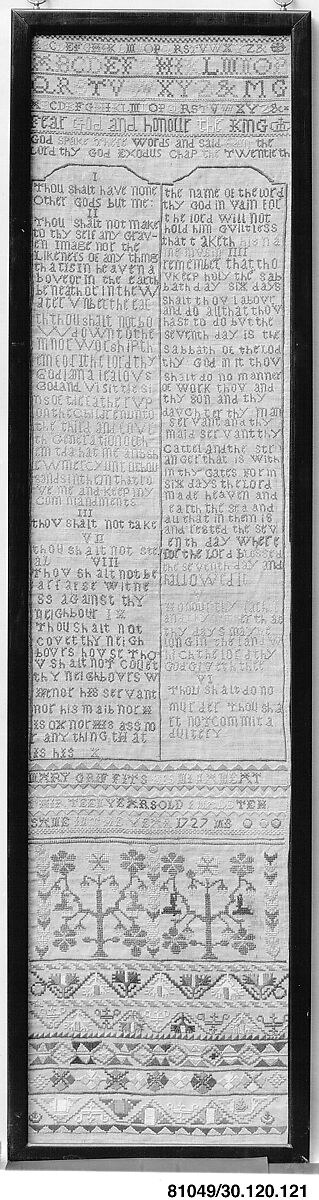 ABCDEFGHIKLMNOPQRSTVWXYZ&
ABCDEF HIKLMNOP
QRSTVWXYZ&MG
ABCDEFGHIKLMNOPQRSTVWXYZ&
fear God and honour the KING
God spake these words and said I am the
Lord thy God Exodus Chap the Twentieth
I
Thou shalt have none
other Gods but me:
II
Thou shalt not make
to thy self any Grav
en Image nor the
likeness of any thing
that is in heaven a
bove or in the earth
beneath or in the W
ater Vnder the ear
th thou shalt not bo
W down to the
m nor Worship th
em for I the lord thy
God am a iealovs
God and Visit the si
ns of the fathers Vp
on the Children unto
the third and fovr
th Generation of th
em that hate me and sh
eW mercy unto thou
sands in them that lo
ve me and keep my
commandments
III
thou shalt not take
VII
thou shalt not ste
al VIII
Thou shalt not be
ar false Witne
ss against thy
neighbour IX
Thou shalt not
covet thy neigh
bovrs hovse Tho
V shalt not covet
thy neighbovrs W
ife nor his servant
nor his maid nor h
is ox nor his ass no
r any thing that
is his X
the name of the lord
thy God in vain For
the lord Will not
hold him Guiltless
that taketh his na
me in vain IIII
remember that tho
V keep holy the sab
bath day six days
shalt thou labour
and do all that thou
hast to do but the
seventh day is the
sabbath of the lord
thy God in it thou
shalt do no manner
of Work thou and
thy son and thy
daughter thy man
servant and thy
maid servant thy
Cattel and the str
anger that is With
in thy Gates For in
six days the lord
made heaven and
earth the sea and
all that in them is
and rested the sev
enth day Where
for the lord blessed
the seventh day and
hallowed it
V
Honour thy father
and thy mother that
thy days may be
long in the land W
hich the lord thy
God Giveth thee
VI
Thou shalt do no
murder Thou sha
lt not commit a
dultery
MARY GRIFFITS
TEEN YEARS OLD TEH
SAME YEAR 1727 MG
81049/30.120.121